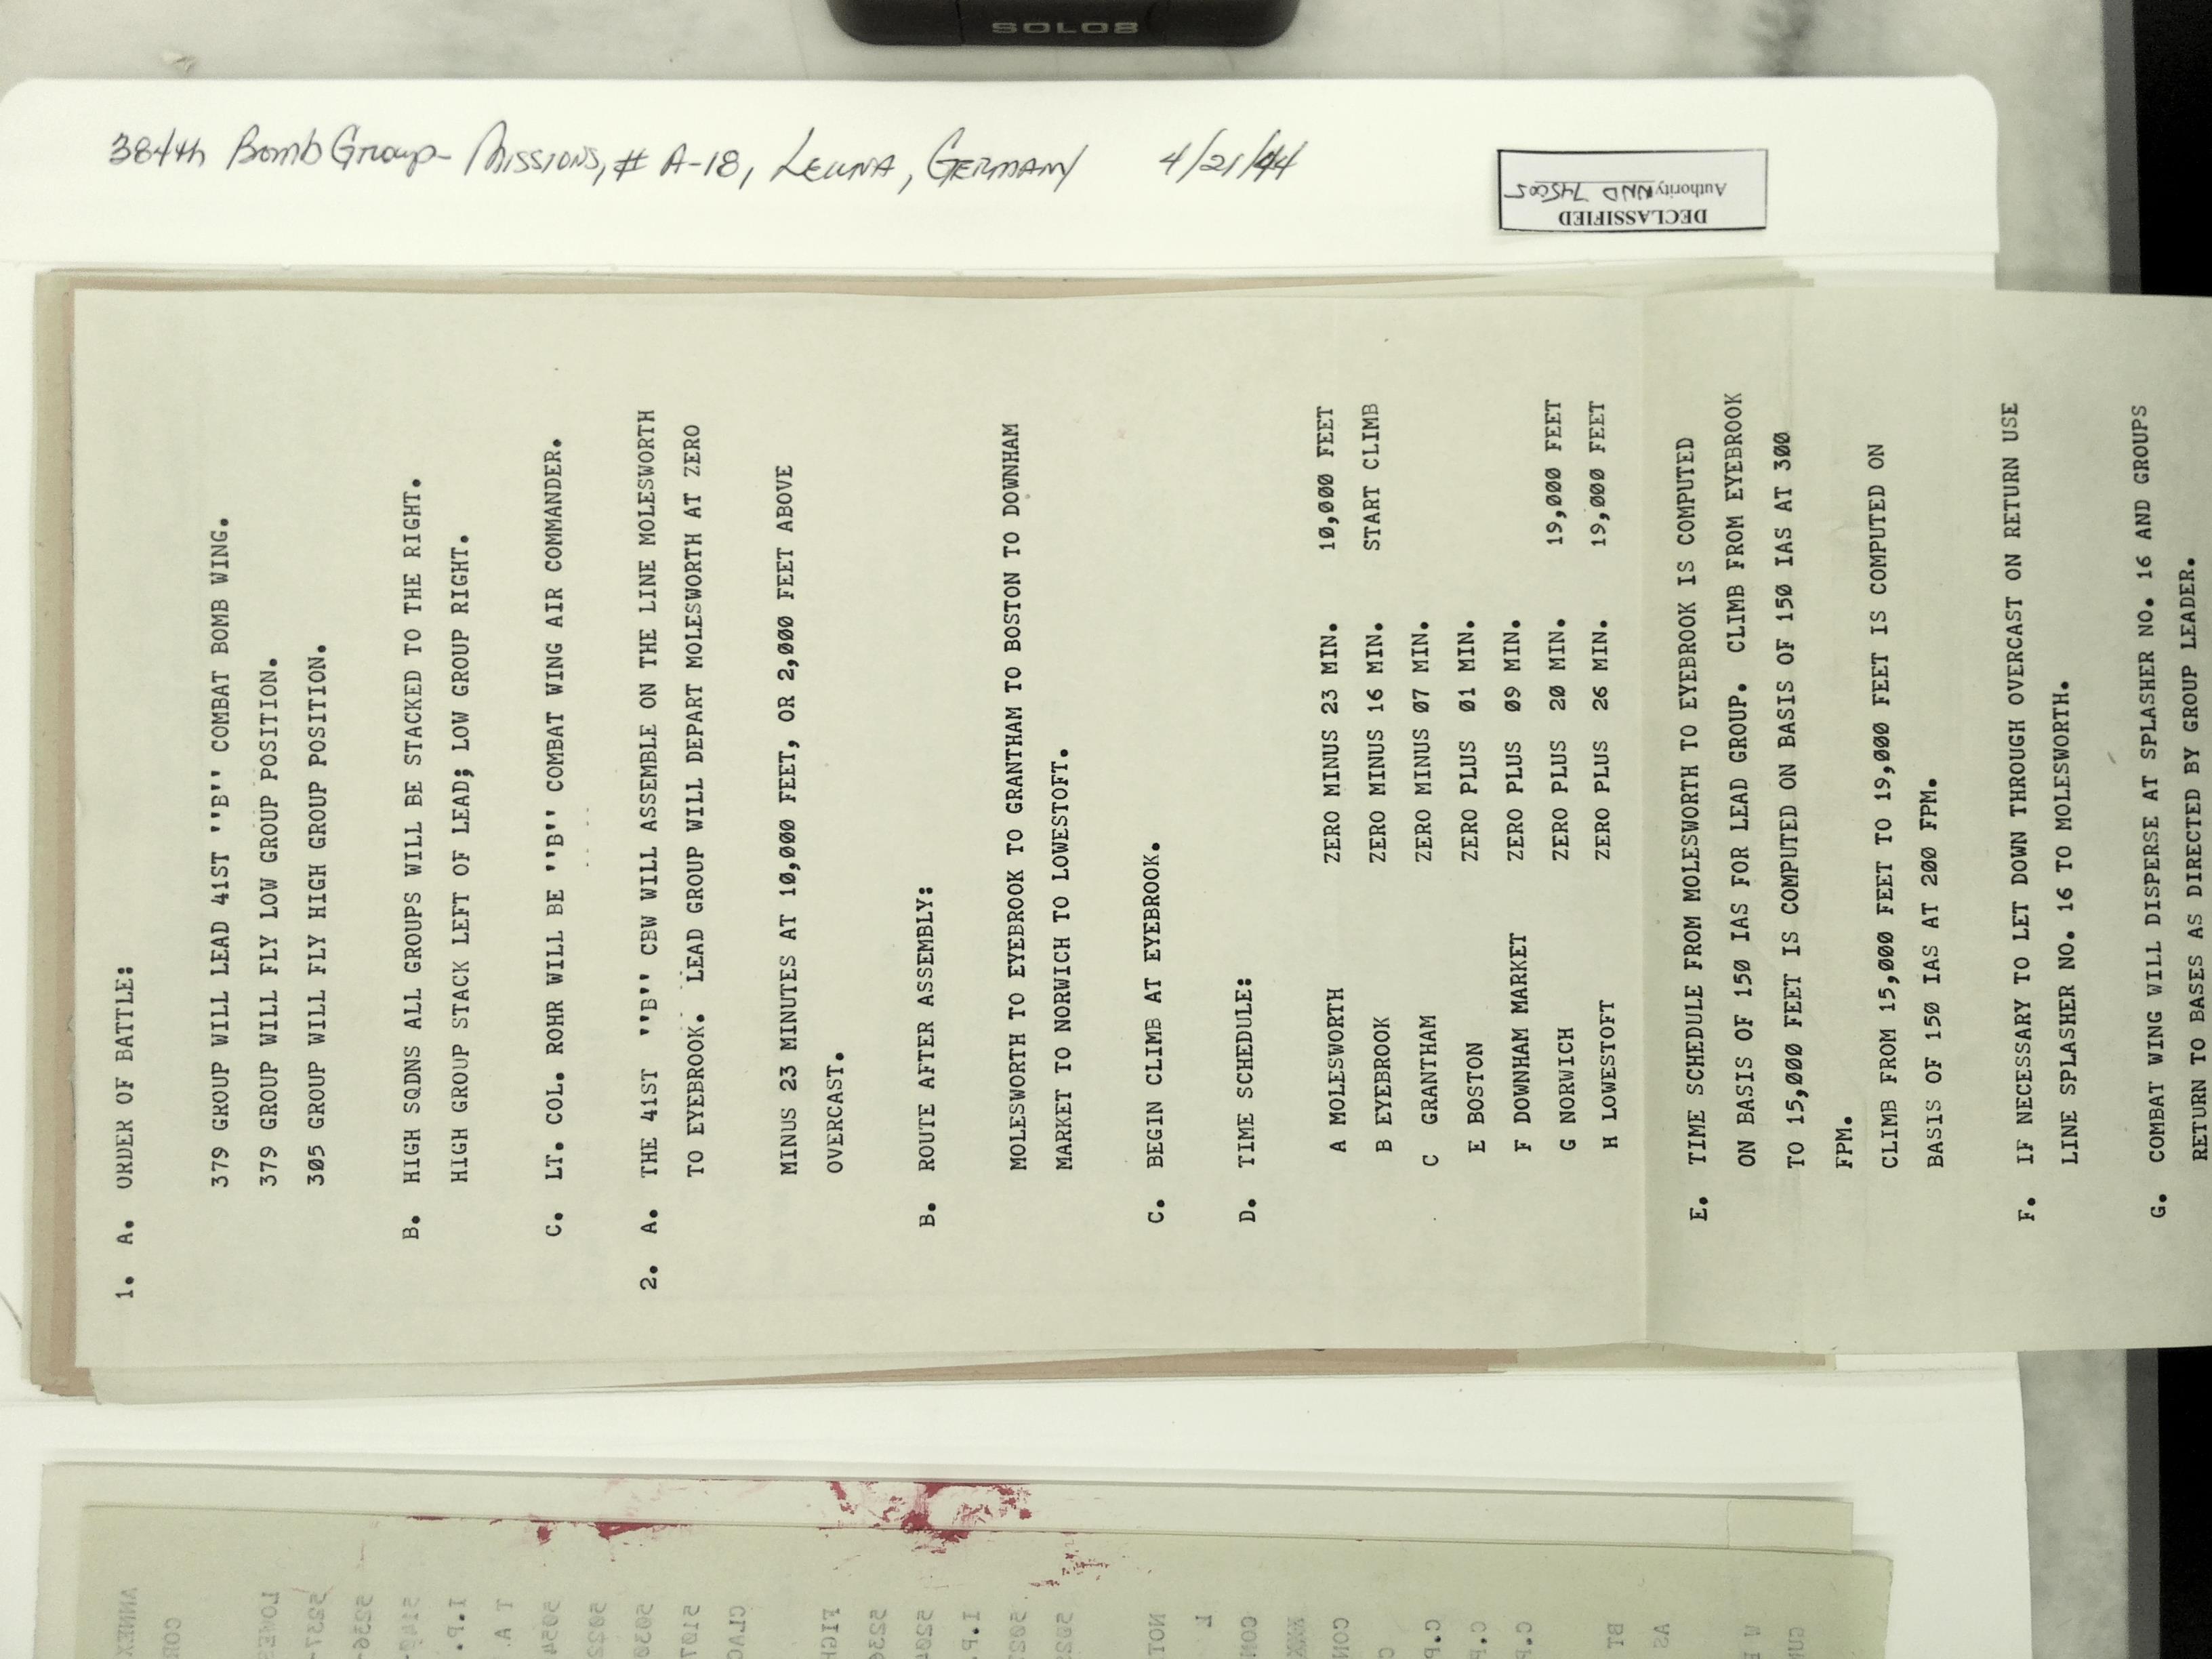 SOLO8
384th Bomb Group - Missions, # A-18, LEUNA, GERMANY 4/21/44
DECLASSIFIED
Authority NND 745005
1. A. ORDER OF BATTLE:
379 GROUP WILL LEAD 41ST ''B'' COMBAT BOMB WING.
379 GROUP WILL FLY LOW GROUP POSITION.
305 GROUP WILL FLY HIGH GROUP POSITION.
B. HIGH SQDNS ALL GROUPS WILL BE STACKED TO THE RIGHT.
HIGH GROUP STACK LEFT OF LEAD; LOW GROUP RIGHT.
C. LT. COL. ROHR WILL BE ''B'' COMBAT WING AIR COMMANDER.
2. A. THE 41ST ''B'' CBW WILL ASSEMBLE ON THE LINE MOLESWORTH
TO EYEBROOK. LEAD GROUP WILL DEPART MOLESWORTH AT ZERO
MINUS 23 MINUTES AT 10,000 FEET, OR 2,000 FEET ABOVE
OVERCAST.
B. ROUTE AFTER ASSEMBLY:
MOLESWORTH TO EYEBROOK TO GRANTHAM TO BOSTON TO DOWNHAM
MARKET TO NORWICH TO LOWESTOFT.
C. BEGIN CLIMB AT EYEBROOK.
D. TIME SCHEDULE:
A MOLESWORTH ZERO MINUS 23 MIN. 10,000 FEET
B EYEBROOK ZERO MINUS 16 MIN. START CLIMB
C GRANTHAM ZERO MINUS 07 MIN.
E BOSTON ZERO PLUS 01 MIN.
F DOWNHAM MARKET ZERO PLUS 09 MIN.
G NORWICH ZERO PLUS 20 MIN. 19,000 FEET
H LOWESTOFT ZERO PLUS 26 MIN. 19,000 FEET
E. TIME SCHEDULE FROM MOLESWORTH TO EYEBROOK IS COMPUTED
ON BASIS OF 150 IAS FOR LEAD GROUP. CLIMB FROM EYEBROOK
TO 15,000 FEET IS COMPUTED ON BASIS OF 150 IAS AT 300
FPM.
CLIMB FROM 15,000 FEET TO 19,000 FEET IS COMPUTED ON
BASIS OF 150 IAS AT 200 FPM.
F. IF NECESSARY TO LET DOWN THROUGH OVERCAST ON RETURN USE
LINE SPLASHER NO. 16 TO MOLESWORTH.
G. COMBAT WING WILL DISPERSE AT SPLASHER NO. 16 AND GROUPS
RETURN TO BASES AS DIRECTED BY GROUP LEADER.